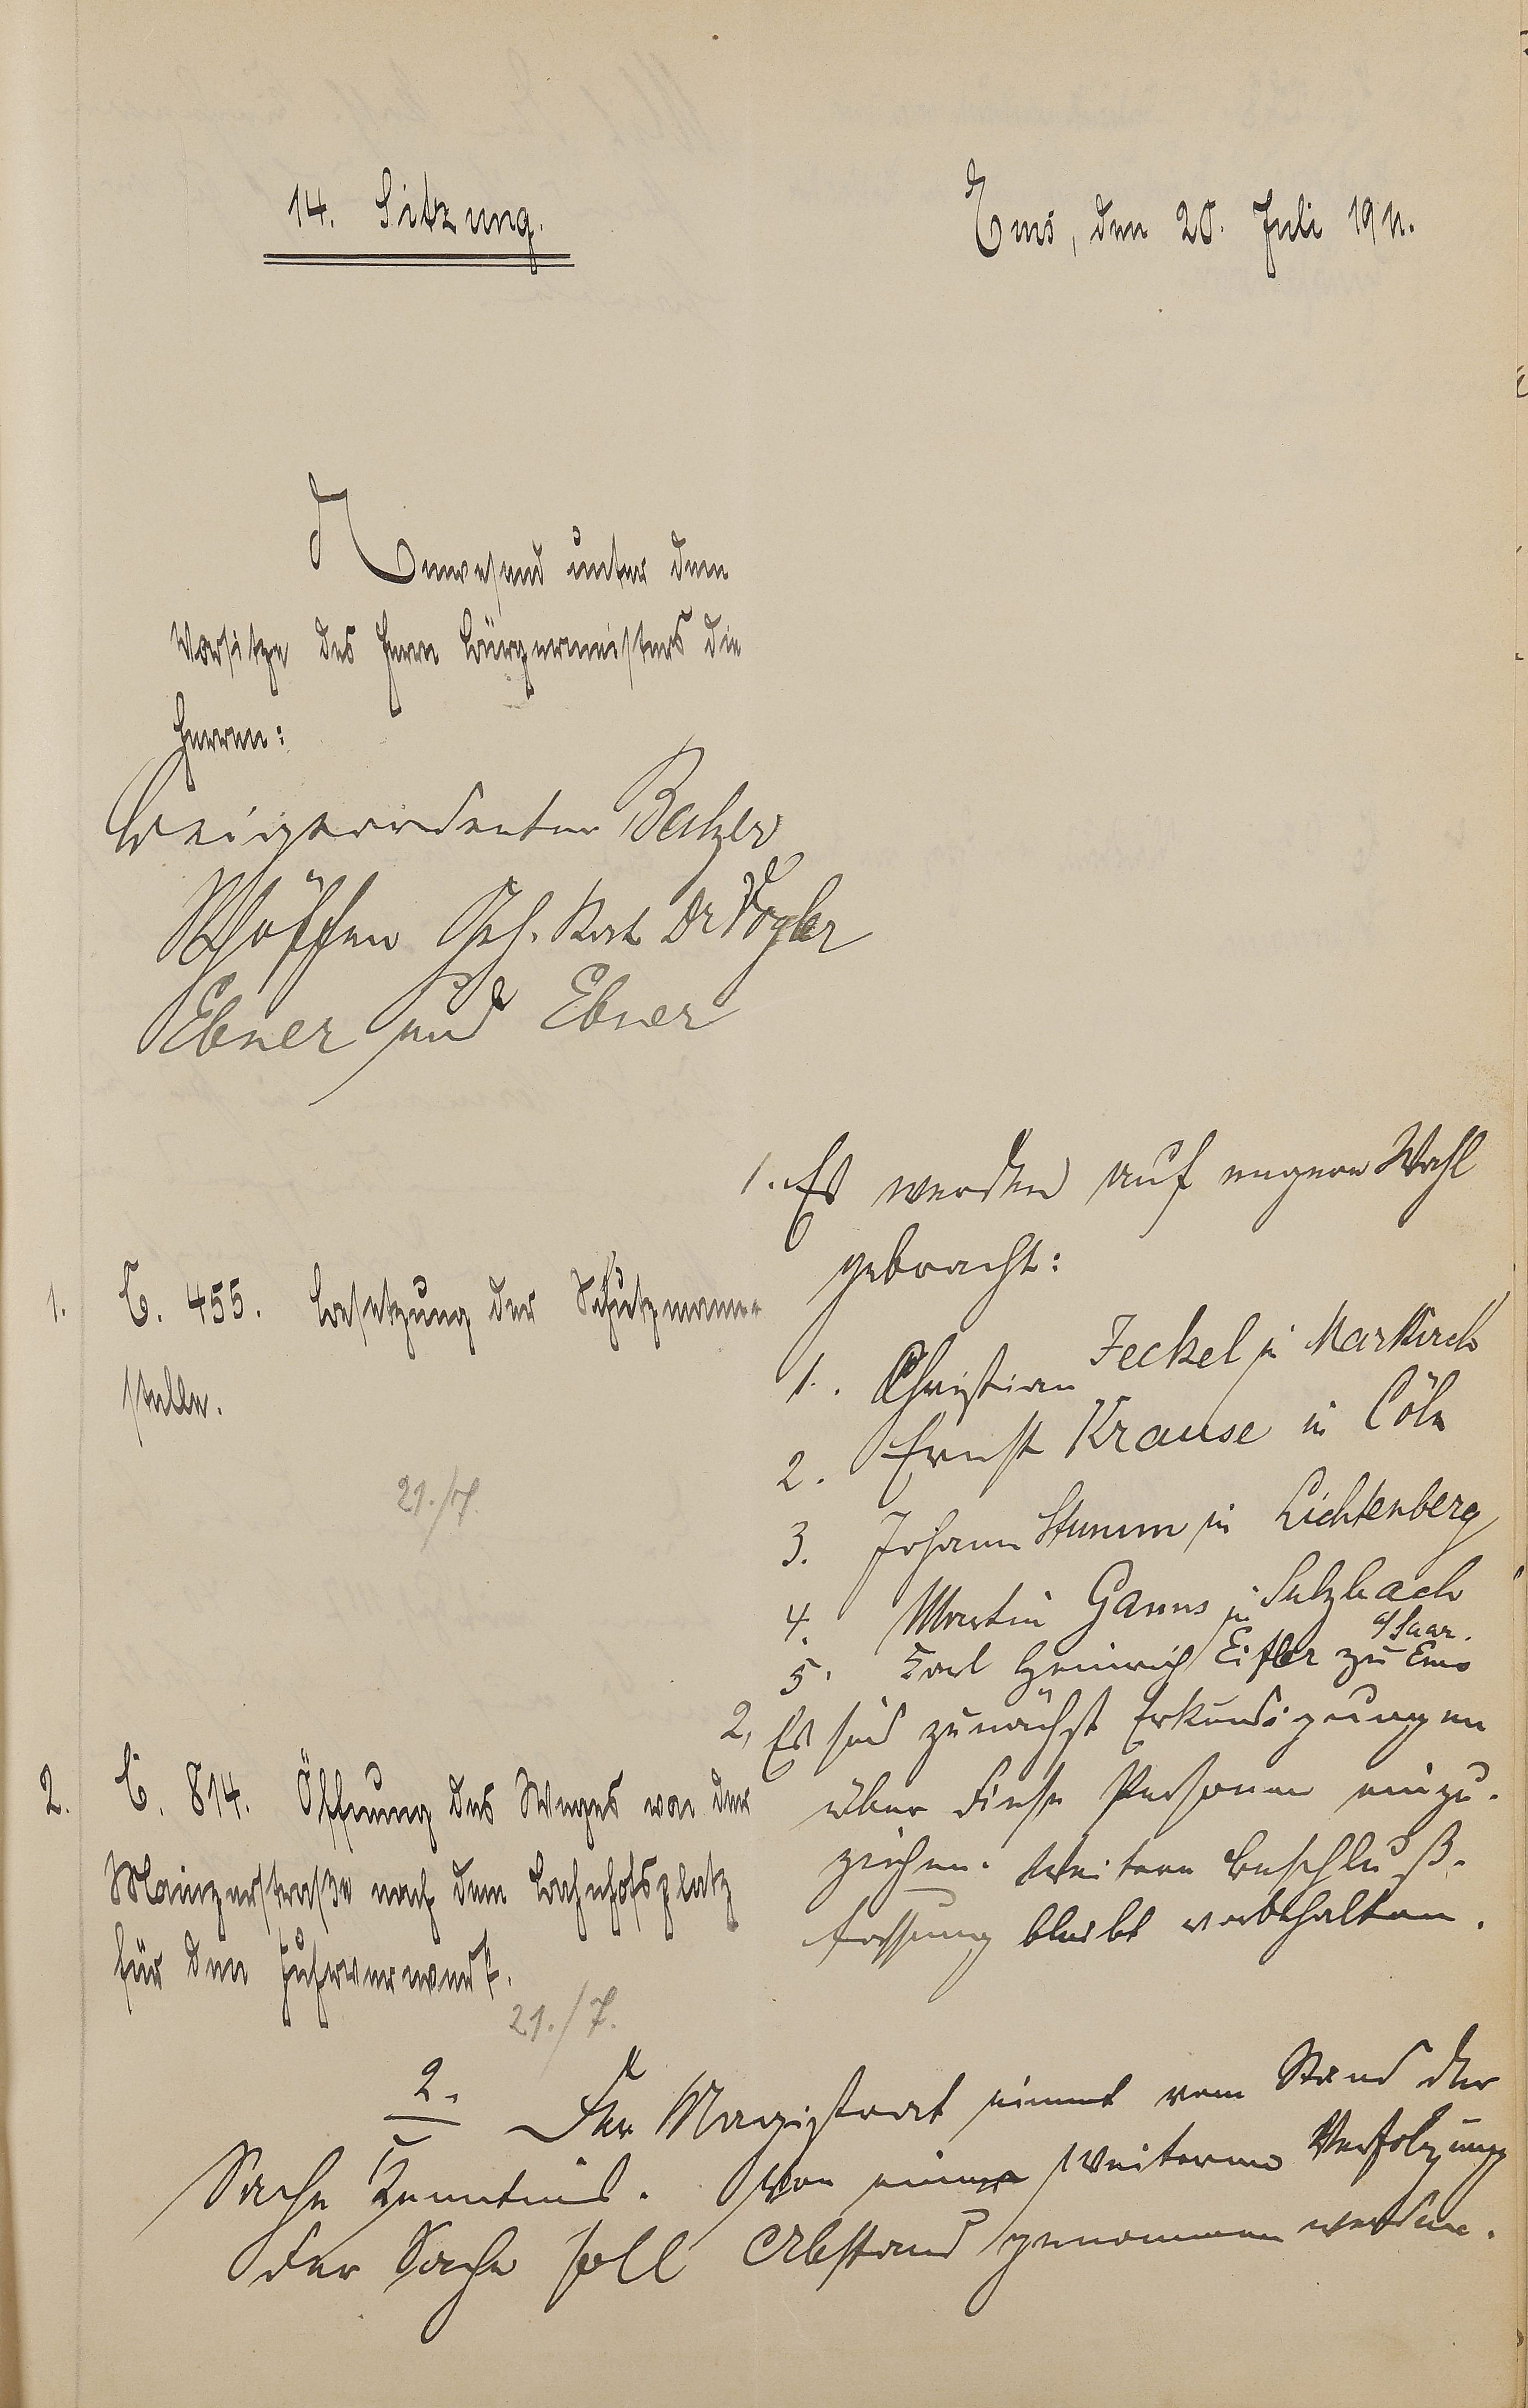 14. Sitzung.
Ems, den 20. Juli 1911.
Anwesend unter dem
Vorsitze des Herrn Bürgermeisters die
Herren:
Beigeordneter Balzer
Schöffen Geh. Rat Dr Vogler
Ebner und Ebner
1. C. 455. Besetzung der Schutzmanns-
stelle.
21./7.
1. Es werden auf engere Wahl
gebracht:
1. Christian Jeckel in Markirch
2. Ernst Krause in Cöln
3. Johann Stumm in Lichtenberg
4. Martin Ganns in Sulzbach
a/Saar.
5. Karl Heinrich Eifler zu Ems
2, Es sind zunächst Erkundigungen
über diese Personen einzu-
ziehen. Weitere Beschluß-
fassung bleibt vorbehalten.
2. C. 814. Öffnung des Weges von der
Mainzerstraße nach dem Bahnhofsplatz
für den Fuhrwerk.
21./7.
2. Der Magistrat nimmt vom Stand der
Sache Kenntnis. Von einer weiteren Verfolgung
der Sache soll Abstand genommen werden.